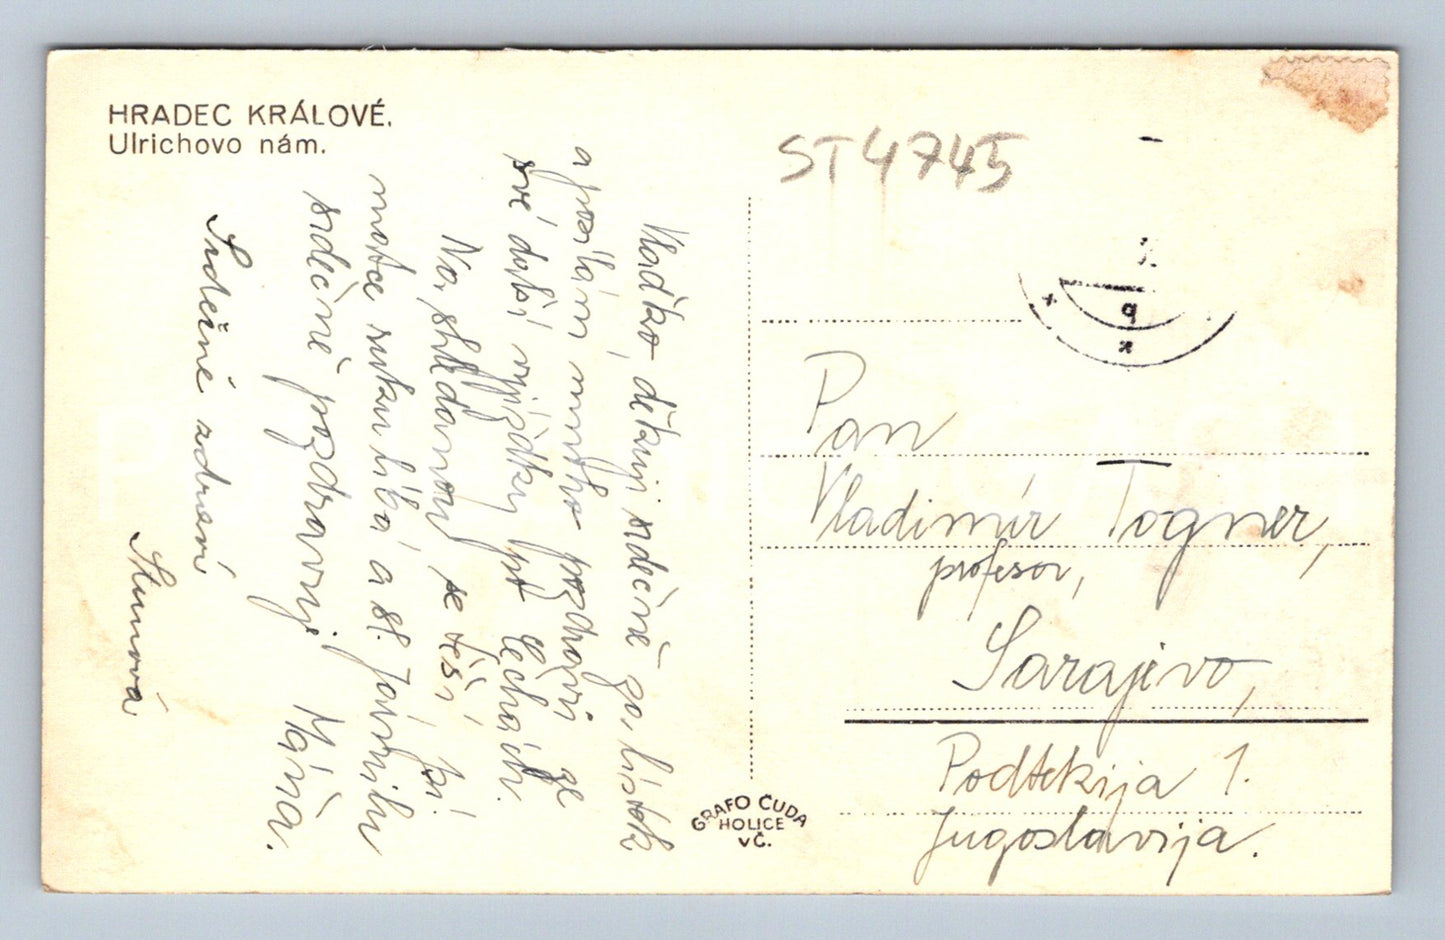 HRADEC KRÁLOVÉ.
Ulrichovo nám.
ST4745
Vlaďko, děkuji srdečně za lístek
a posílám mnoho pozdravů ze
své další vyjížďky po Čechách.
Na shledanou se těší, pí.
matce ruku líbá a sl. Jarmilu
srdečně pozdravuji Máňa.
Srdečně zdraví
Pan
Vladimír Togner,
profesor,
Sarajevo,
Podtekija 1.
Jugoslavija.
GRAFO ČUDA
HOLICE
VČ.